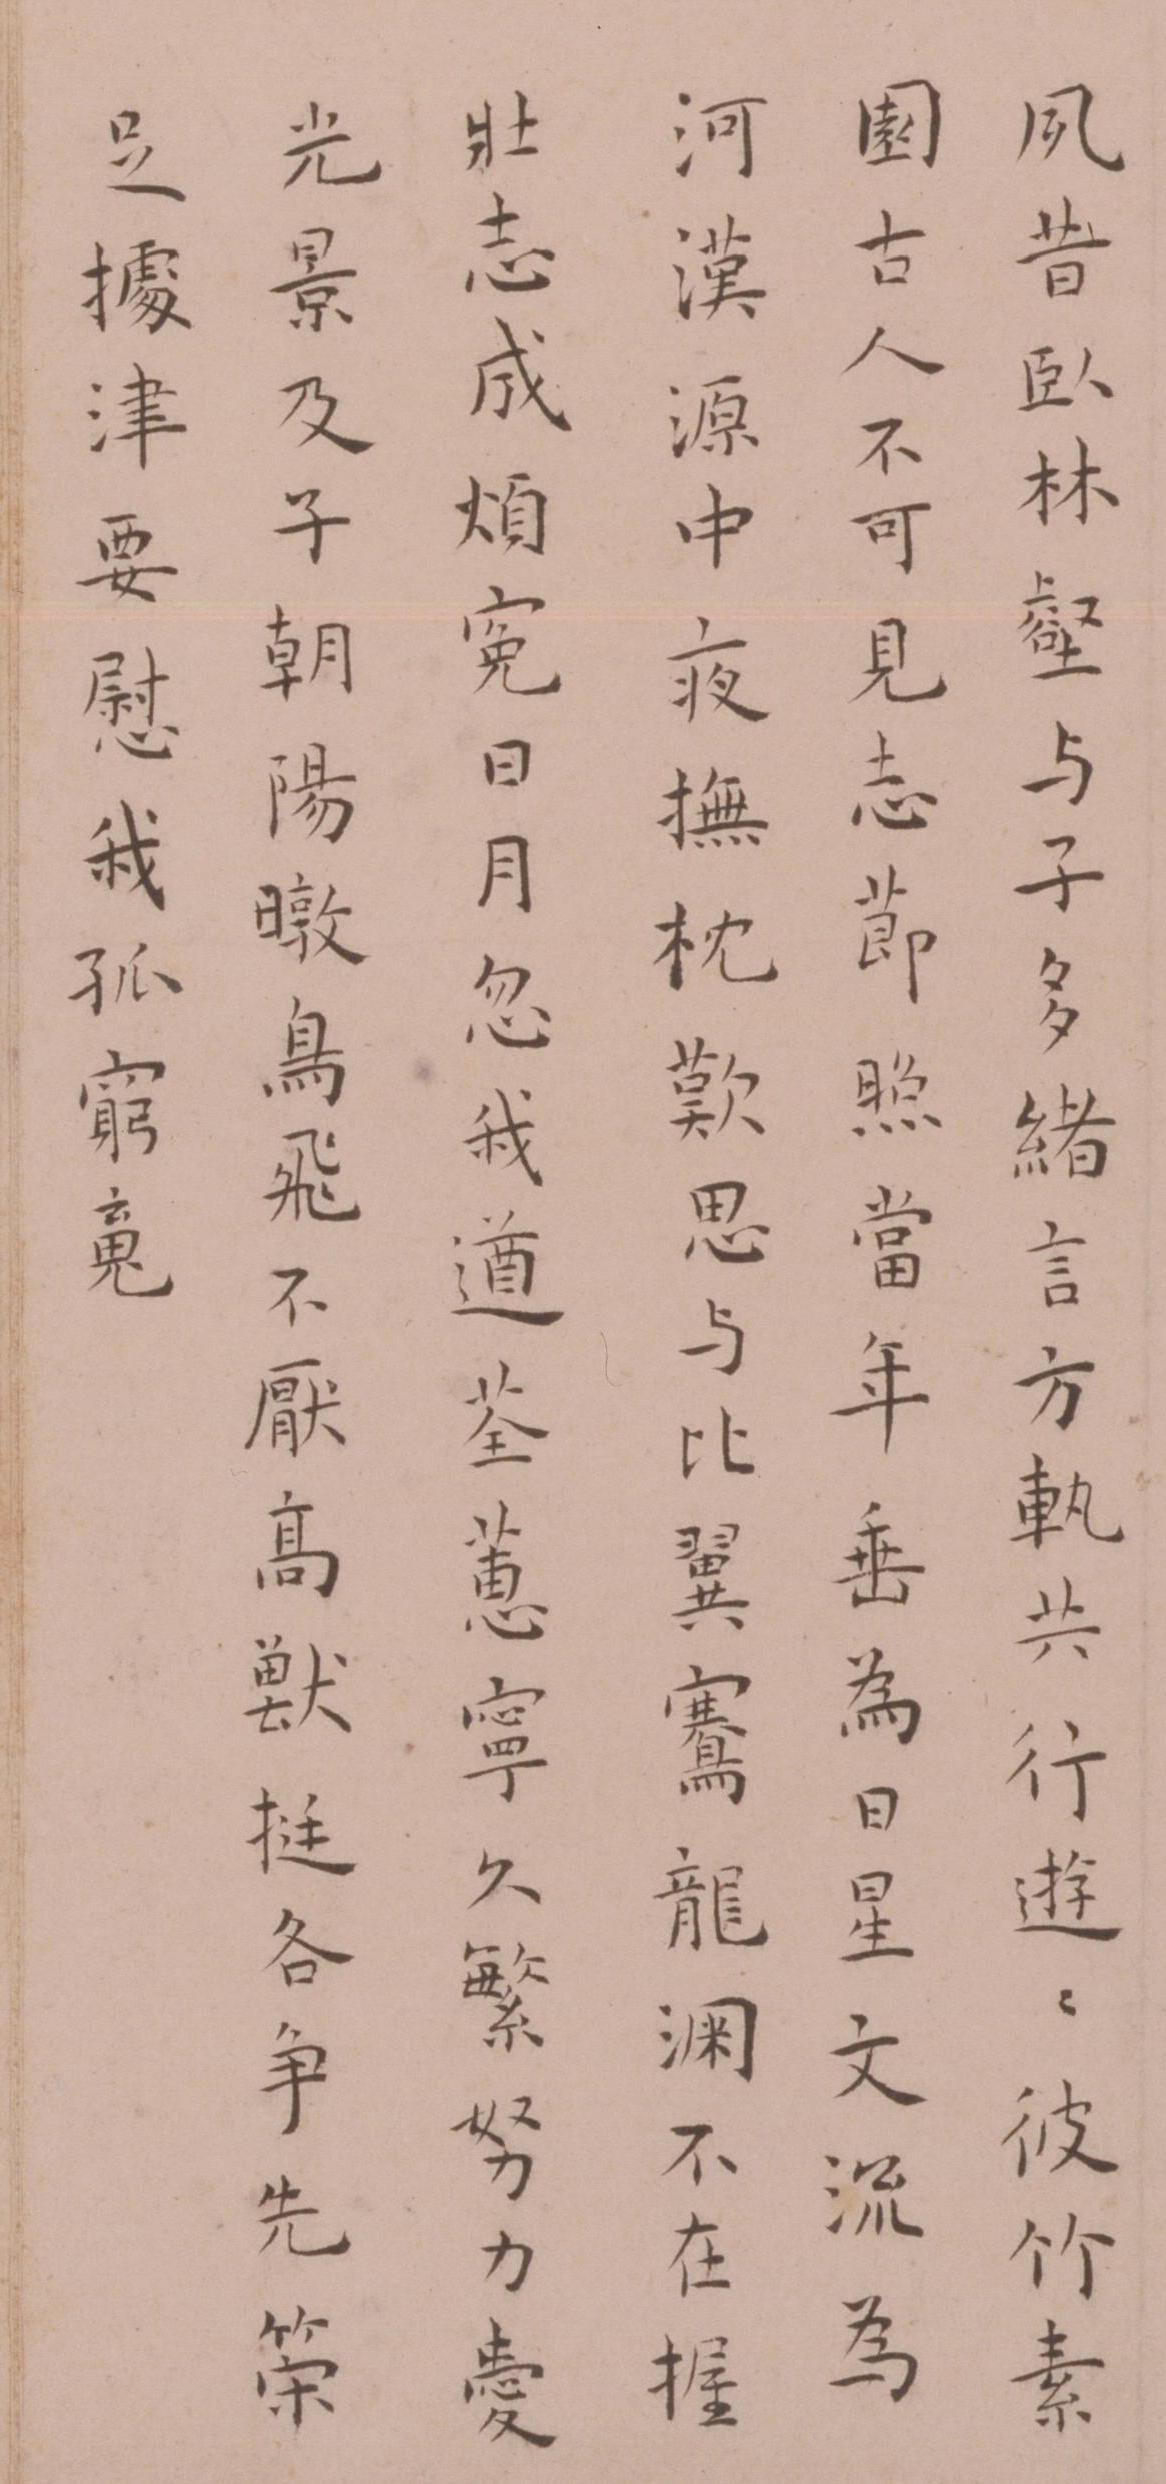 夙昔臥林壑与子多緒言方軌共行遊〻彼竹素
園古人不可見志節照當年垂為日星文流為
河漢源中夜撫枕歎思与比翼騫龍淵不在握
壯志成煩冤日月忽我遒荃蕙寧久繁努力愛
光景及子朝陽暾鳥飛不厭高獸挺各争先策
足據津要慰我孤窮䰟